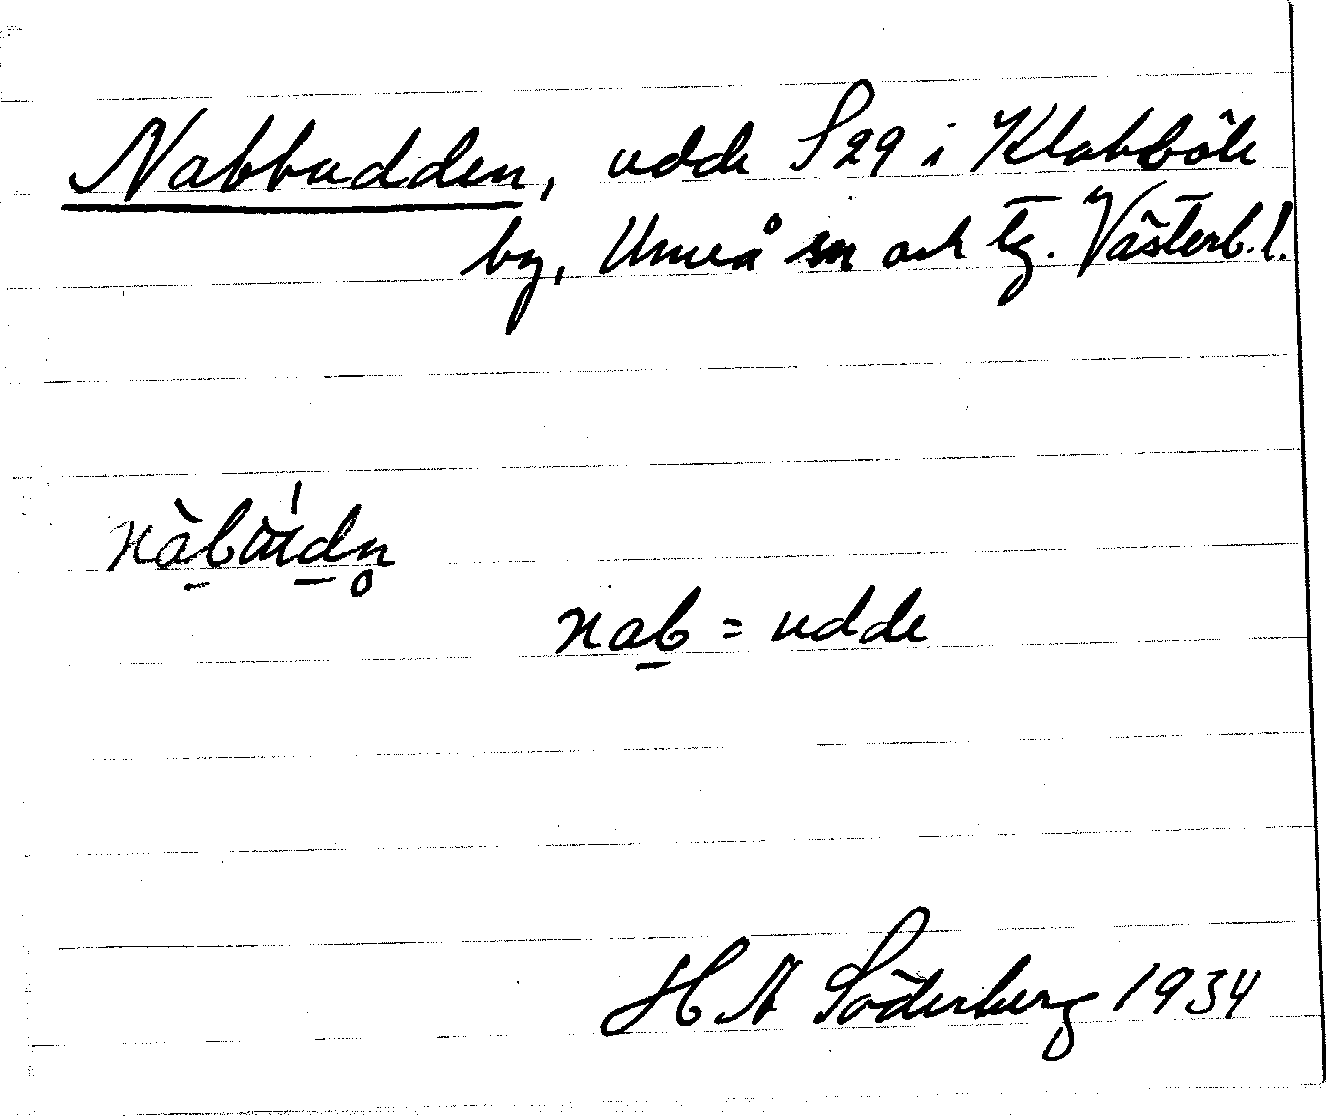 Nabbudden, udde S 29 i Klabböle
by, Umeå sn och tg. Västerb. l.
nab = udde
H A Söderberg 1934